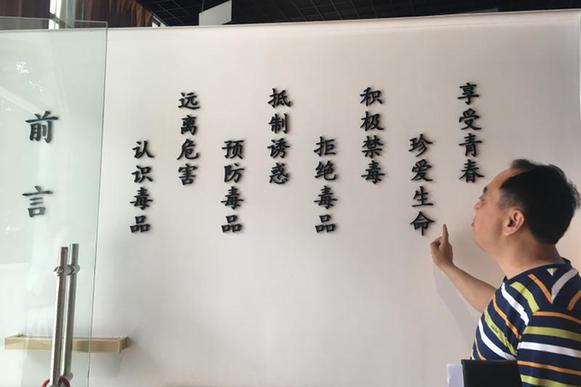 前言
认识毒品
远离危害
预防毒品
抵制诱惑
拒绝毒品
积极禁毒
珍爱生命
享受青春